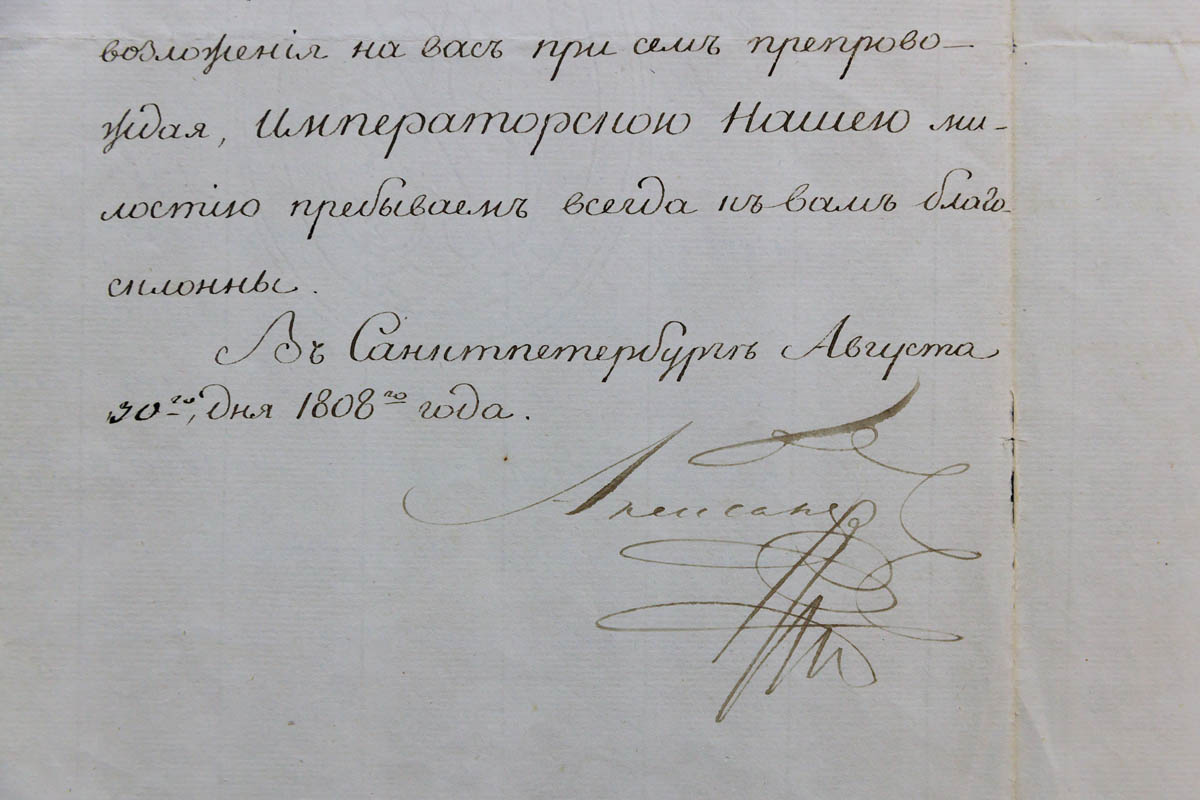 возложенія на васъ при семъ препрово—
ждая, Императорскою Нашею ми-
лостію пребываемъ всегда къ вамъ благо-
склонны.
Въ Санктпетербургѣ Августа
30го, дня 1808го года.
Александръ